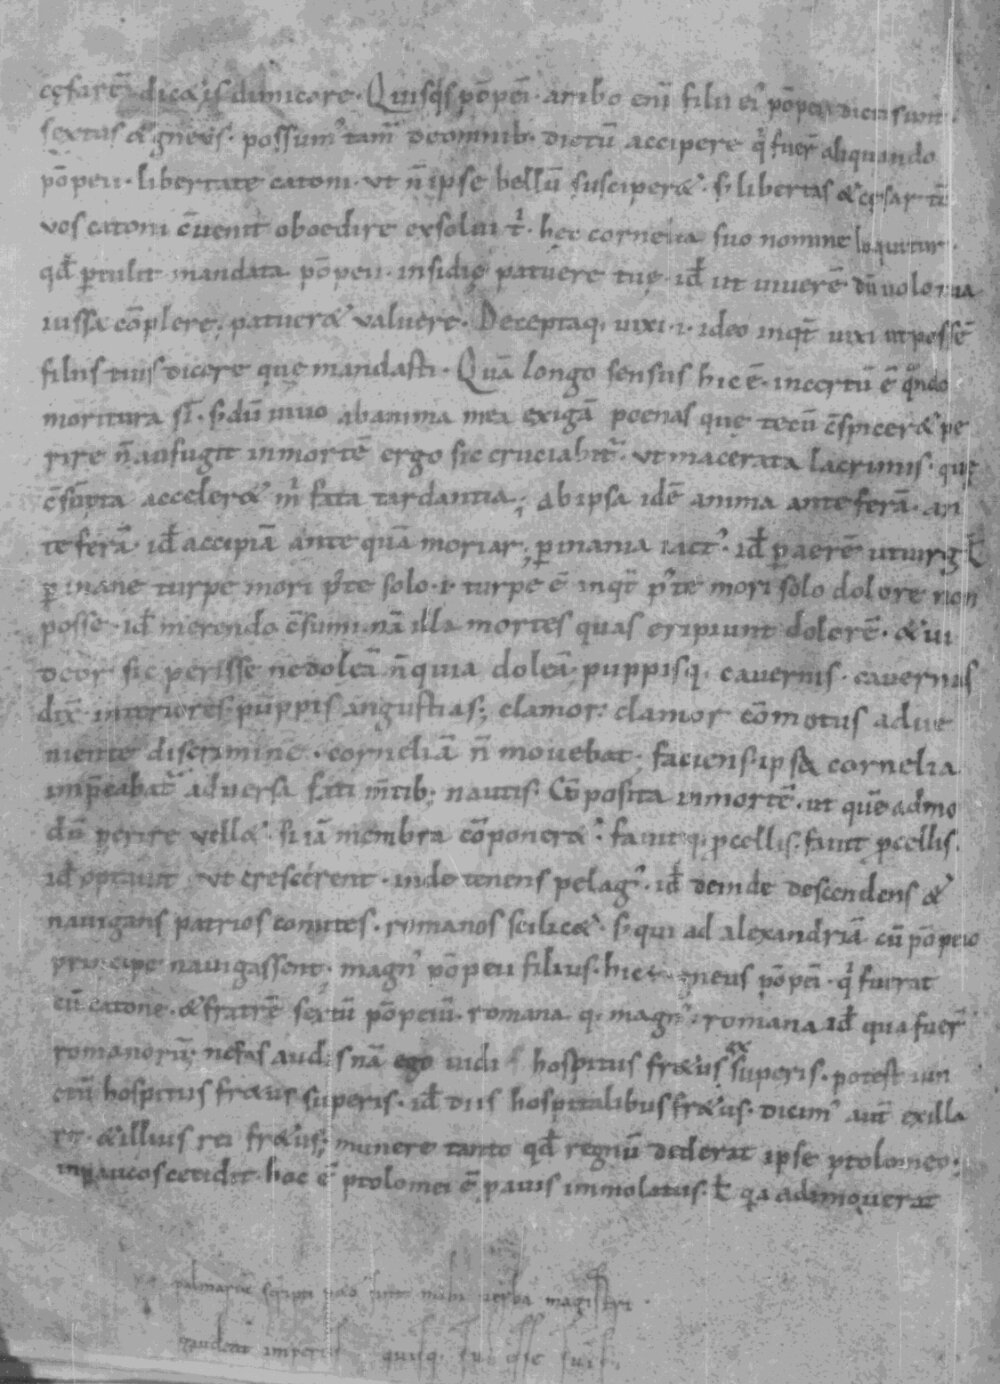 cęsarē dicæ is dimicare · Quisq̇s pōpei · ambo eni filii ei pōpei dicti sunt ·
sextus & gneus · possum' tam̄ deomnib; dictū accipere q̇ fuer̄ aliquando
pōpeii · libertate catoni · ut n̄ ipse bellū susciperæ · s; libertas & cęsar tū
vos catoni c̄venit oboedire exsolui t̄ · hec cornelia suo nomine loquitur ·
qđ ꝑtulit mandata pōpeii · insidię patuere tuę · iđ ut viverē dū volo tua
iussa cōplere · patueræ valuere · Deceptaq; vixi · i · ideo inq̄t vixi ut possē
filiis tuis dicere que mandasti · Quā longo sensus hic ē · incertū ē q̄ndo
moritura sī · s; dū vivo abanima mea exigā poenas quę tecū c̄spiceræ pe
rire n̄ aufugit inmortē ergo sic cruciabit̄ · ut macerata lacrimis · quę
c̄sūpta acceleræ m̄ fata tardantia; ab ipsa idē anima ante ferā · an
te ferā · iđ accipiā ante quā moriar; ꝑ inania iact' · iđ ꝑ aerē ut virg̃ ł
ꝑ inane turpe mori p̄ te solo · i · turpe ē inq̄t p̄ te mori solo dolore non
posse · iđ merendo c̄sumi nā illa mortes quas eripiunt dolorē · & vi
deor sic perisse ne doleā n̄ quia doleā puppisq; cavernis · cavernas
dix̄ interiores puppis angustias; clamor: clamor cōmotus adve
niente discrimine · corneliā n̄ movebat · faciens · ipsa cornelia
imp̄cabat̄ adversa fati m̄tib; nautis · Cōposita inmortē · ut quē admo
dū perire vellæ · si iā membra cōponeræ · favitq; ꝓcellis · favit ꝓcellis ·
iđ optavit ut crescerent · inde tenens pelag' · iđ deinde descendens &
navigans patrios comites · romanos scilicæ · s; qui ad alexandriā cū pōpeio
principe navigassent · magn' pōpeii filius · hic gneus pōpei · q̇ fuerat
cū catone · & fratrē sextū pōpeiū · romana q; magn' · romana iđ qua fuer̄
romanorū; nefas audis nā ego vidi hospitus frætus ex superis · potest iun
ctū hospitus frætus superis · iđ diis hospitalibus frætus · dicim' aut̄ ex illa
re · & illius rei frætus; munere tanto qđ regnū dederat ipse ptolomeo ·
in ꝑavos cecidit · hoc ē ptolomei ē ꝑ avis immolatus · ł q̄a adimoverat
palmaræ scripti
verba magistri ·
gaudeat imperiis quisq; esse suis ·